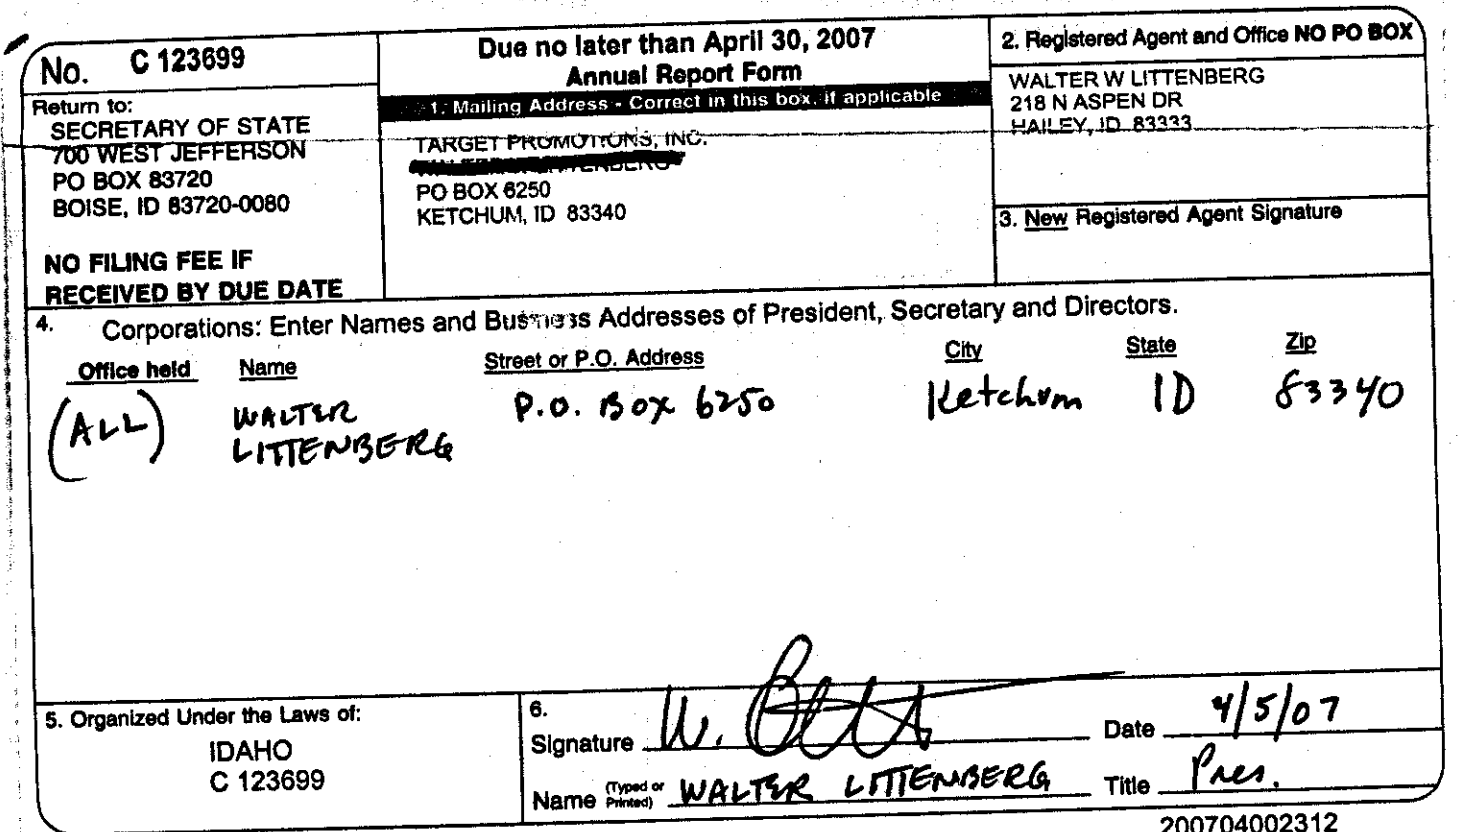 No. C 123699
Return to:
SECRETARY OF STATE
700 WEST JEFFERSON
PO BOX 83720
BOISE, ID 83720-0080
NO FILING FEE IF
RECEIVED BY DUE DATE
Due no later than April 30, 2007
Annual Report Form
1. Mailing Address - Correct in this box, if applicable
TARGET PROMOTIONS, INC.
PO BOX 6250
KETCHUM, ID 83340
2. Registered Agent and Office NO PO BOX
WALTER W LITTENBERG
218 N ASPEN DR
HAILEY, ID 83333
3. New Registered Agent Signature
4. Corporations: Enter Names and Business Addresses of President, Secretary and Directors.
Office held Name Street or P.O. Address City State Zip
(ALL) WALTER P.O. Box 6250 Ketchum ID 83340
LITTENBERG
5. Organized Under the Laws of:
IDAHO
C 123699
6.
Signature W. Date 4/5/07
Name (Typed or Printed) WALTER LITTENBERG Title Pres.
200704002312